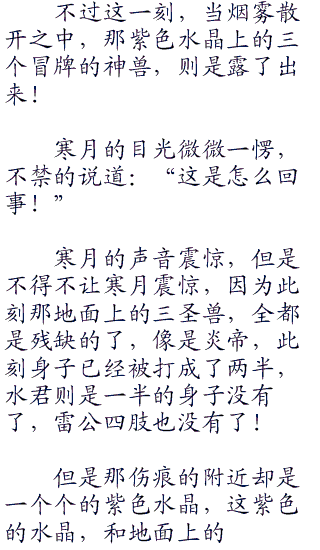 不过这一刻，当烟雾散
开之中，那紫色水晶上的三
个冒牌的神兽，则是露了出
来！
寒月的目光微微一愣，
不禁的说道：“这是怎么回
事！”
寒月的声音震惊，但是
不得不让寒月震惊，因为此
刻那地面上的三圣兽，全都
是残缺的了，像是炎帝，此
刻身子已经被打成了两半，
水君则是一半的身子没有
了，雷公四肢也没有了！
但是那伤痕的附近却是
一个个的紫色水晶，这紫色
的水晶，和地面上的